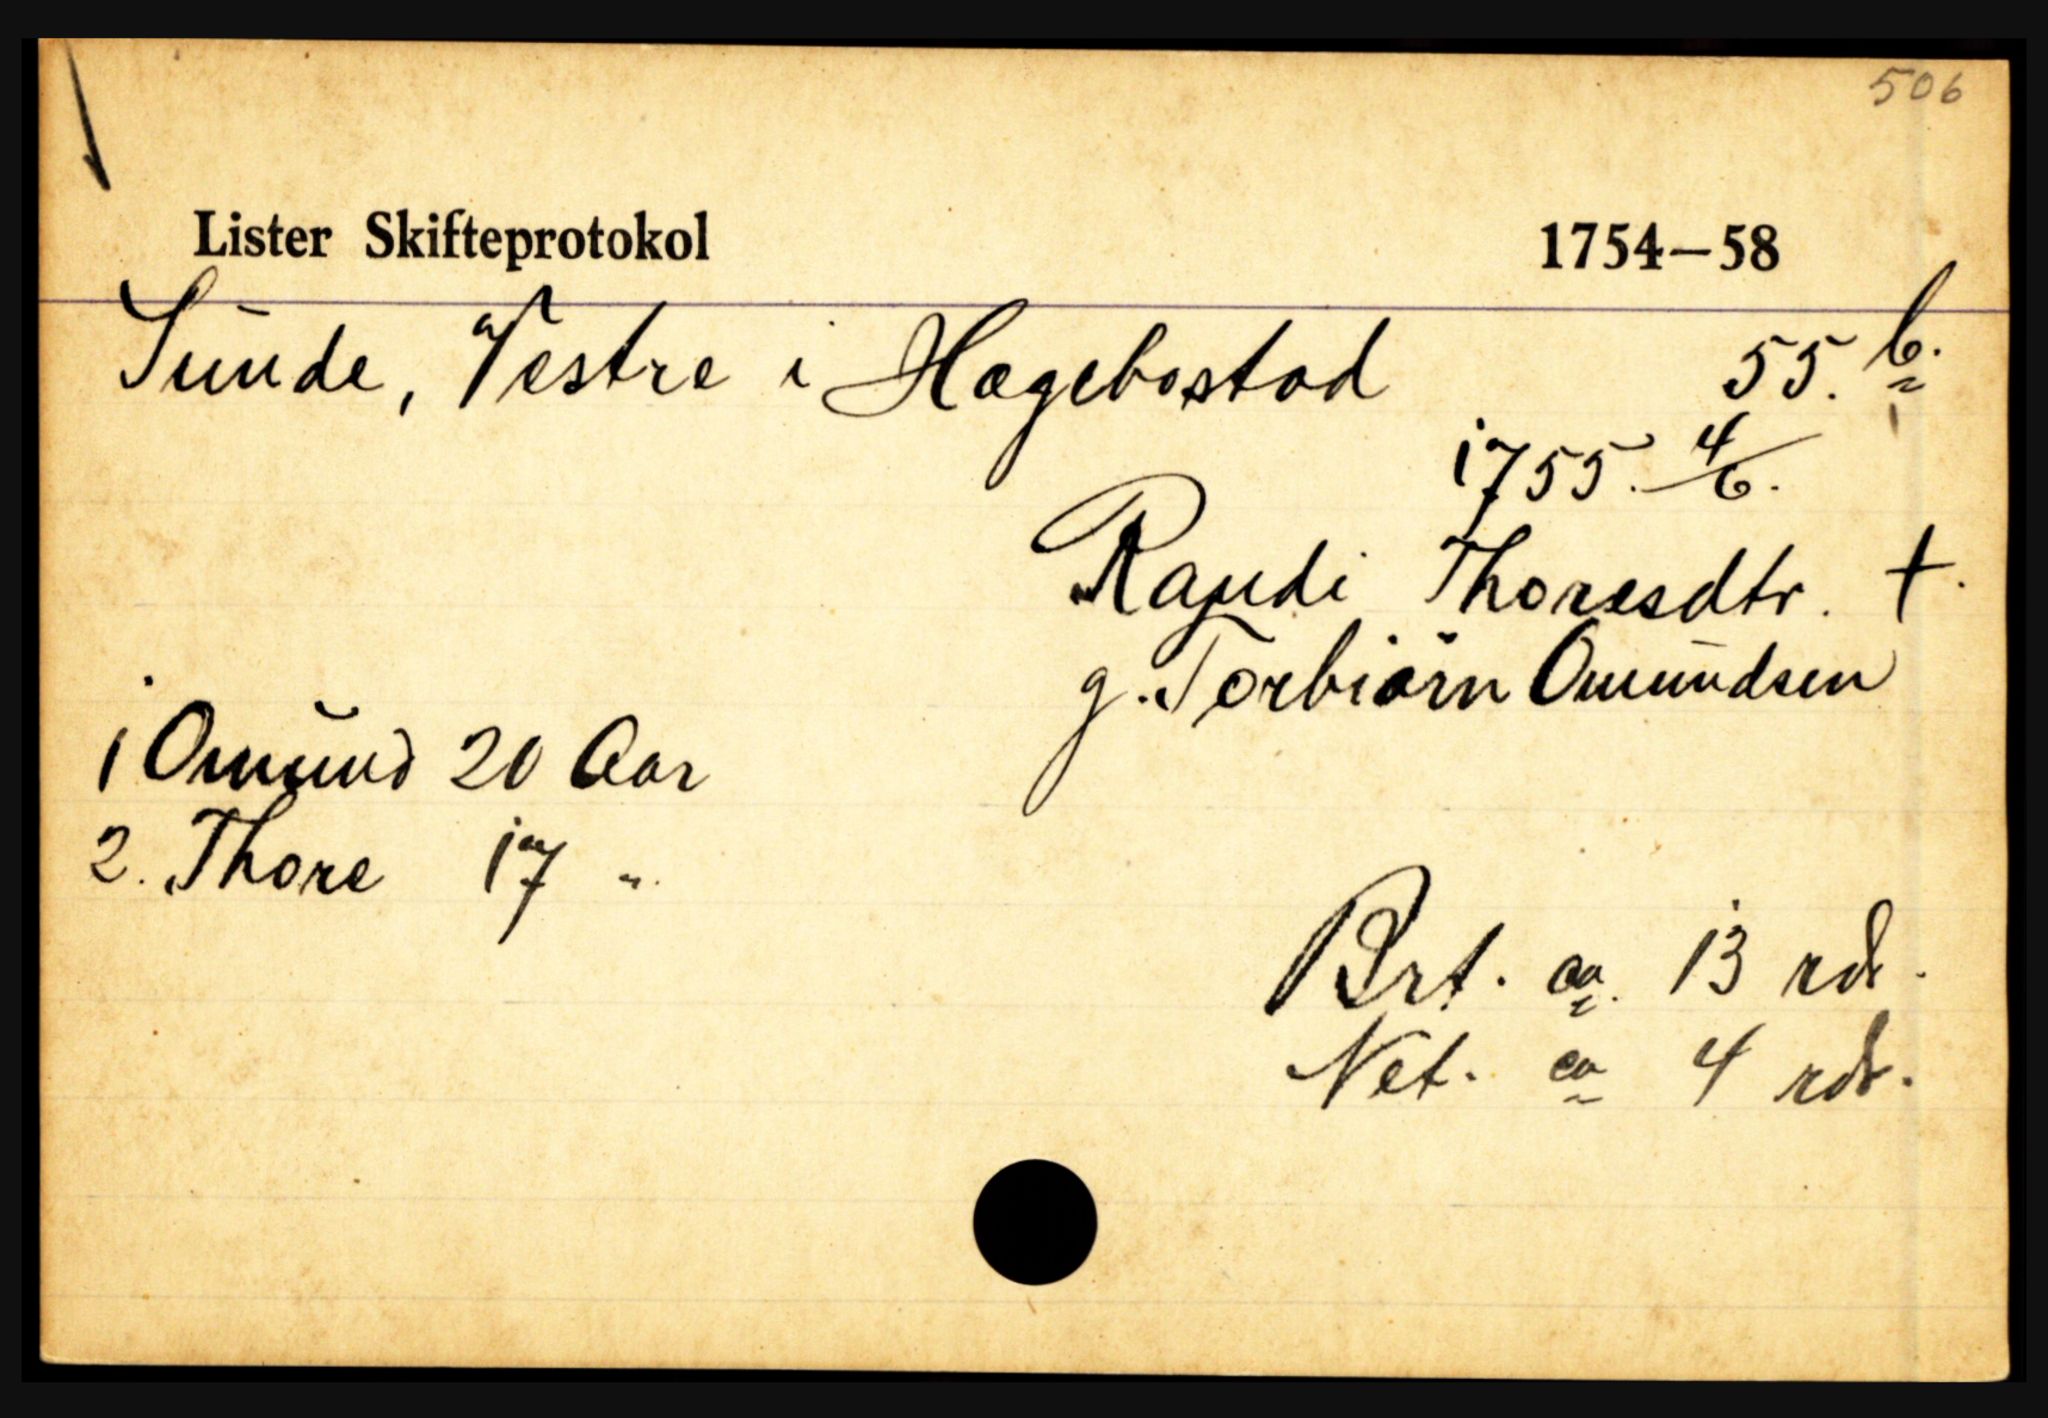 506
Lister Skifteprotokol 1754–58
Sunde, Vestre i Hægebostad 55. b.
1755. 4/6.
Randi Thoresdtr. †.
g. Torbiörn Omundsen
1 Omund 20 Aar
2. Thore 17 "
Brt. ca. 13 rdr.
Net. ca 4 rdr.